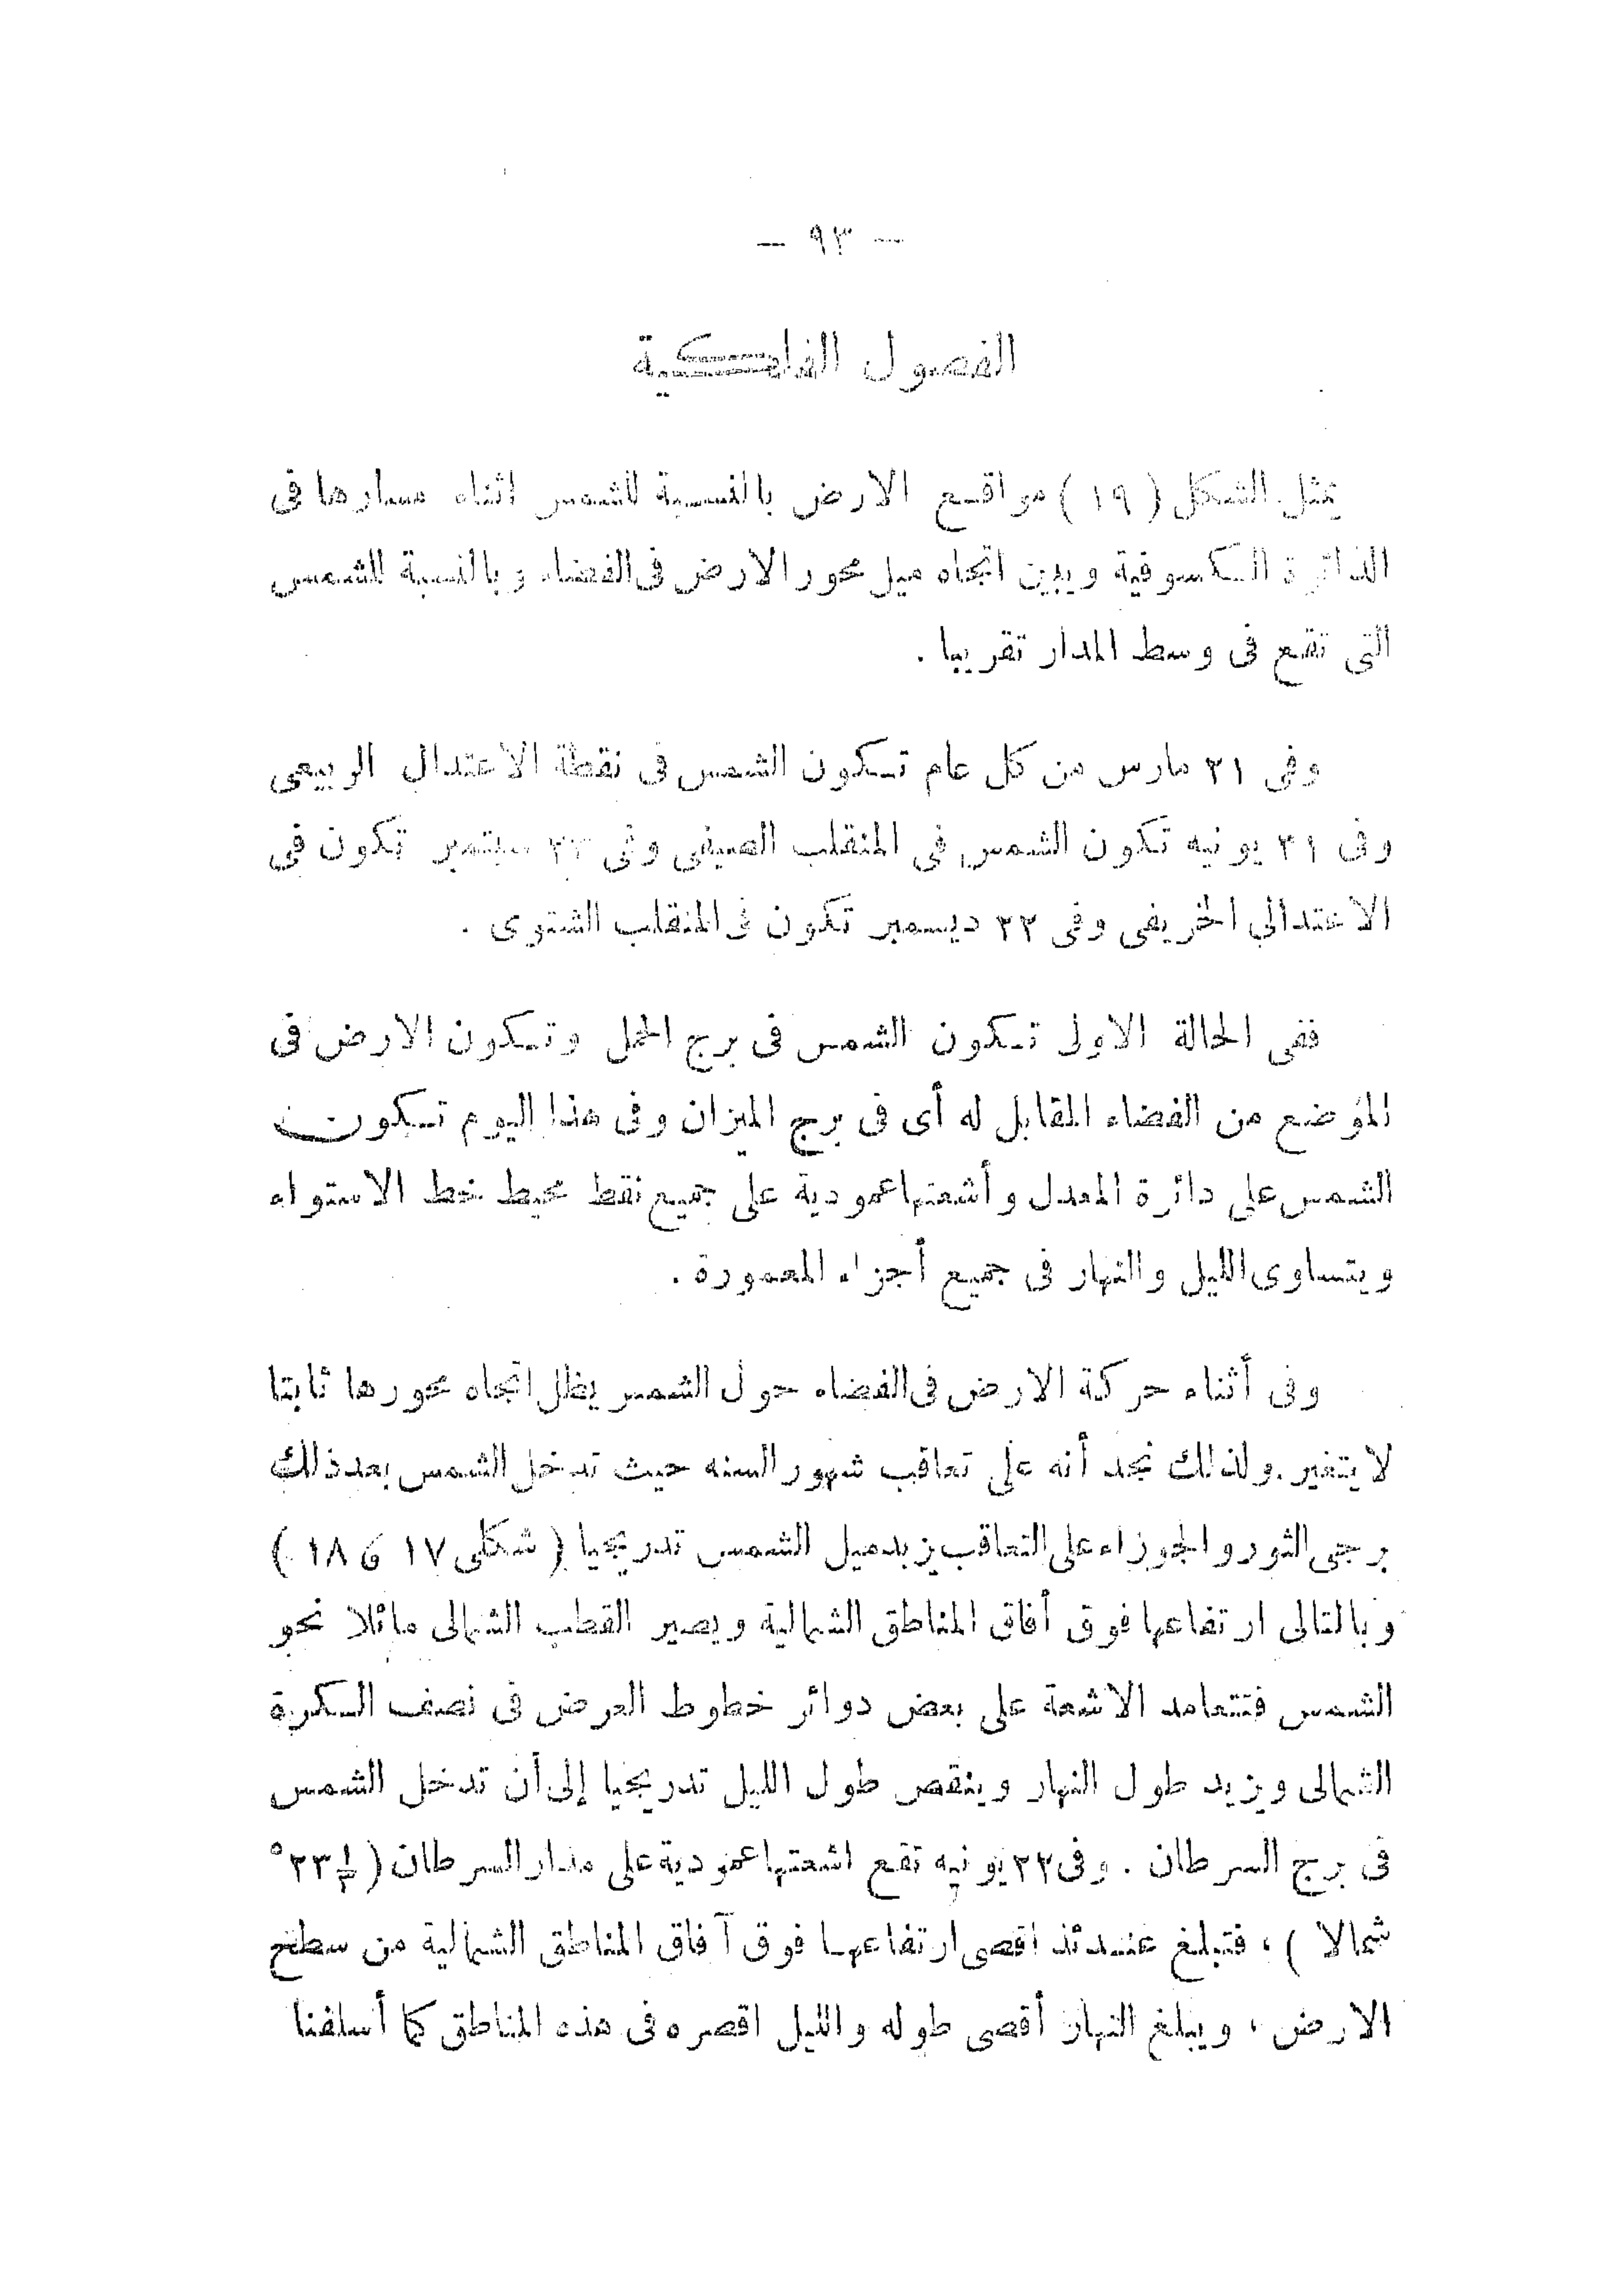 — ٩٣ —
الفصول الفلكية
يمثل الشكل (١٩) مواقع الارض بالنسبة للشمس اثناء مسارها فى
الدائرة الكسوفية ويبين اتجاه ميل محور الارض فى الفضاء وبالنسبة للشمس
التى تقع فى وسط المدار تقريبا .
وفى ٢١ مارس من كل عام تكون الشمس فى نقطة الاعتدال الربيعى
وفى ٢١ يونيه تكون الشمس فى المنقلب الصيفى وفى ٢٣ سبتمبر تكون فى
الاعتدالى الخريفى وفى ٢٢ ديسمبر تكون فى المنقلب الشتوى .
ففى الحالة الاولى تكون الشمس فى برج الحمل وتكون الارض فى
الموضع من الفضاء المقابل له أى فى برج الميزان وفى هذا اليوم تكون
الشمس على دائرة المعدل وأشعتها عمودية على جميع نقط محيط خط الاستواء
ويتساوى الليل والنهار فى جميع أجزاء المعمورة .
وفى أثناء حركة الارض فى الفضاء حول الشمس يظل اتجاه محورها ثابتا
لا يتغير. ولذلك نجد أنه على تعاقب شهور السنه حيث تدخل الشمس بعد ذلك
برجى الثور والجوزاء على التعاقب يزيد ميل الشمس تدريجيا ( شكلى ١٧ ق ١٨ )
وبالتالى ارتفاعها فوق أفاق المناطق الشمالية ويصير القطب الشمالى مائلا نحو
الشمس فتتعامد الاشعة على بعض دوائر خطوط العرض فى نصف الكرة
الشمالى ويزيد طول النهار وينقص طول الليل تدريجيا إلى أن تدخل الشمس
فى برج السرطان . وفى ٢٢ يونيه تقع اشعتها عمودية على مدار السرطان ( ٢٣½°
شمالا ) ، فتبلغ عندئذ اقصى ارتفاعها فوق آفاق المناطق الشمالية من سطح
الارض ، ويبلغ النهار أقصى طوله والليل اقصره فى هذه المناطق كما أسلفنا